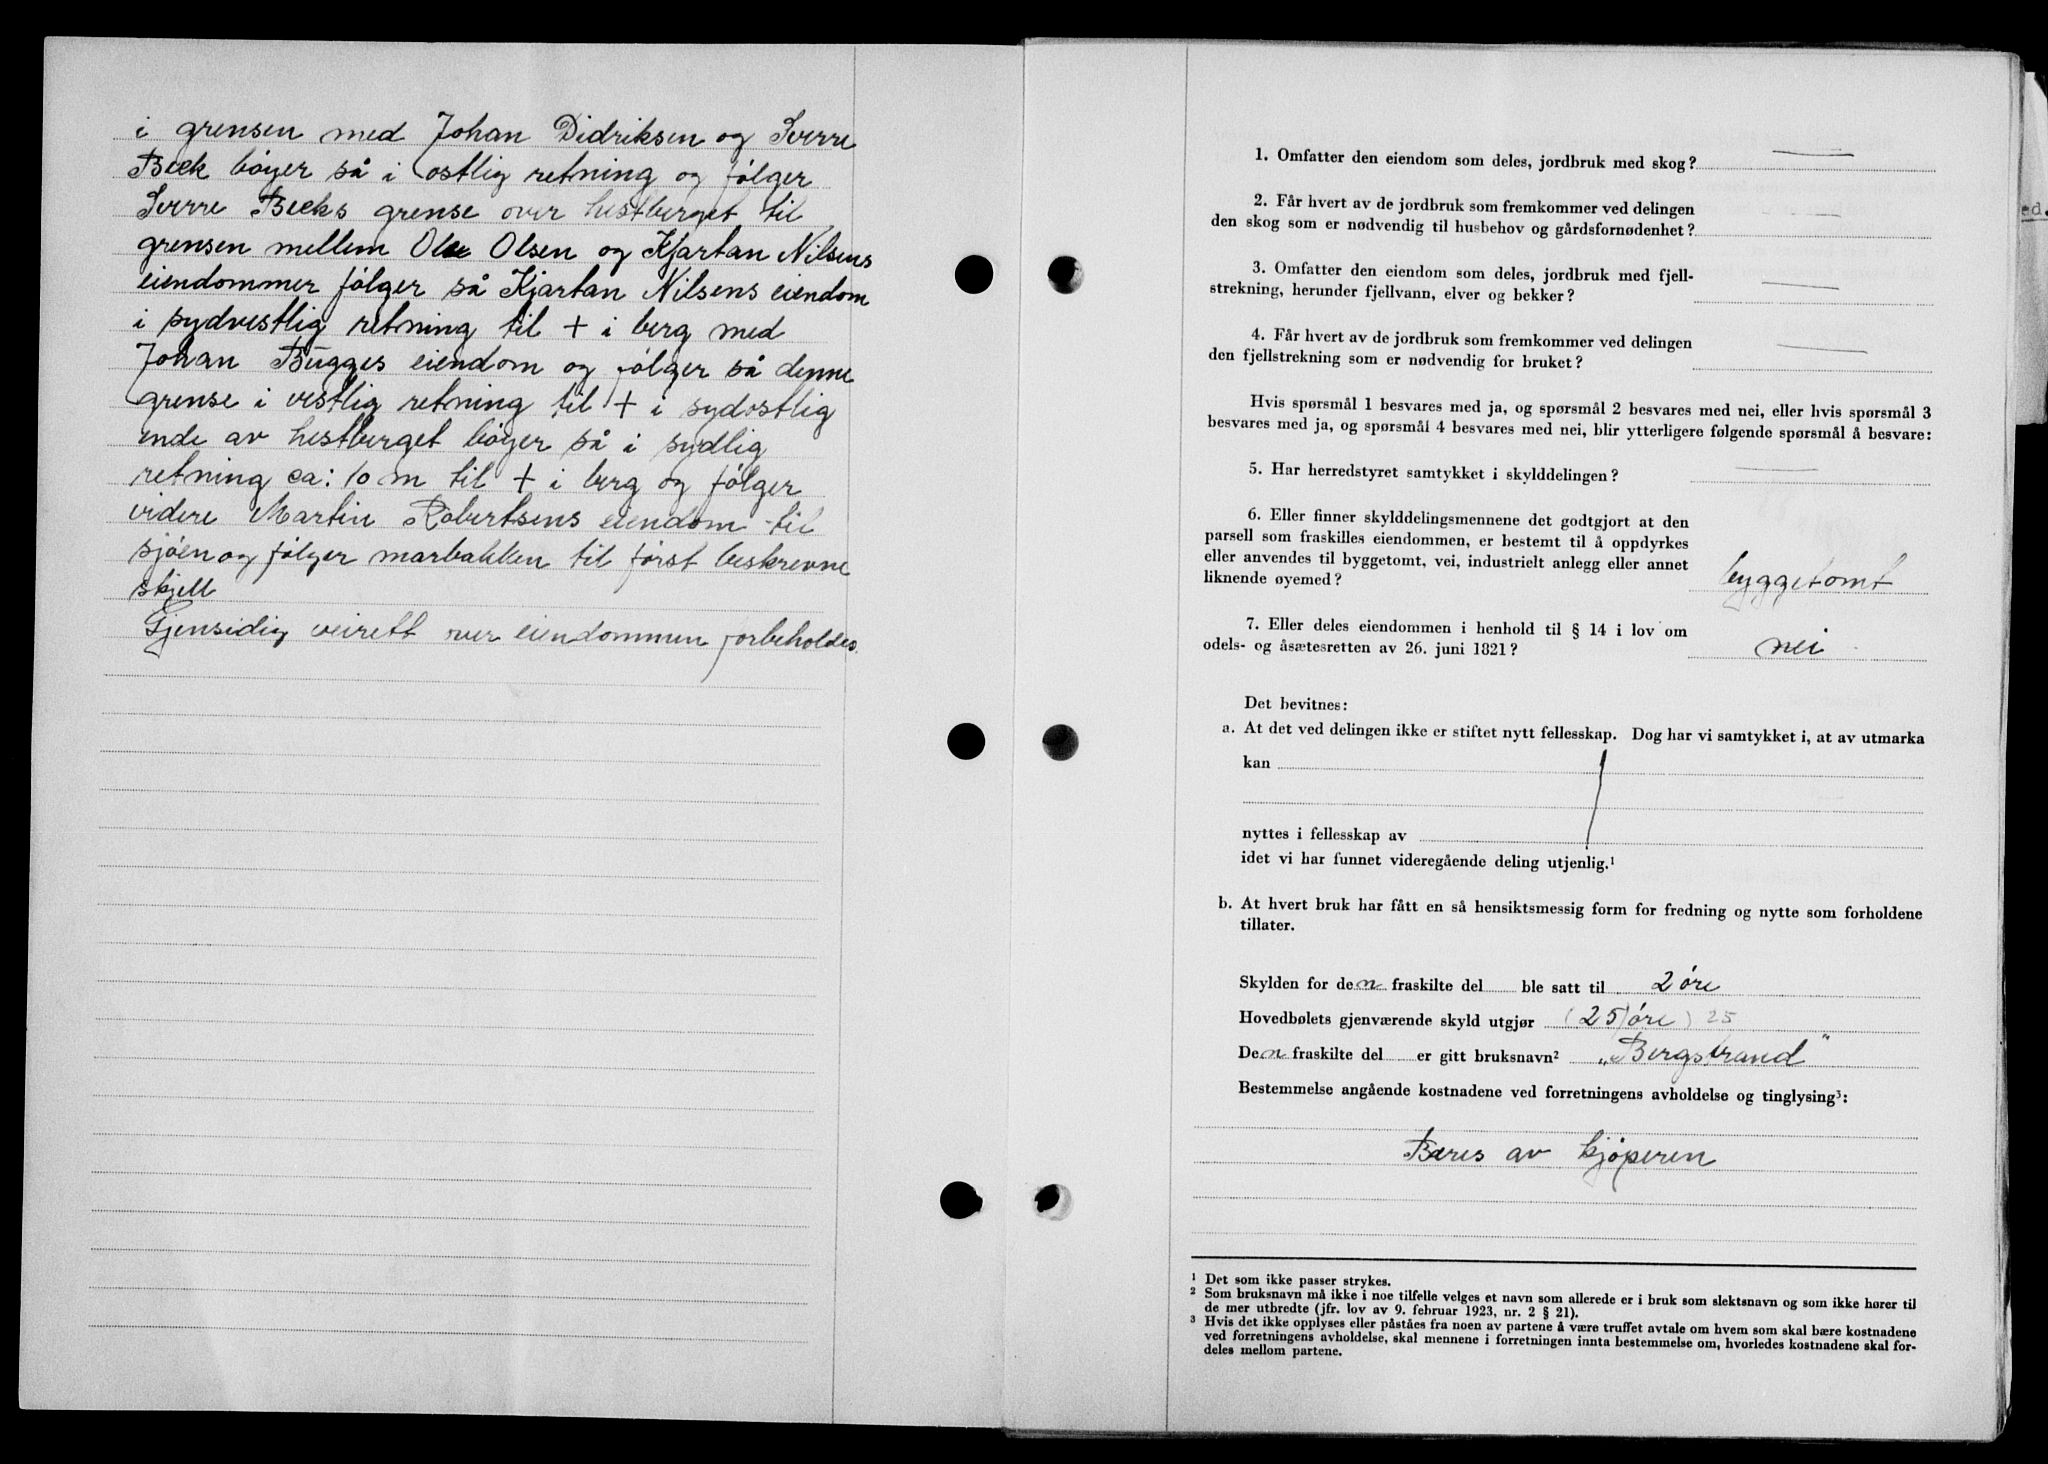 i grensen med Johan Didriksen og Sverre
Beck bøyer så i østlig retning og følger
Sverre Becks grense over hestberget til
grensen mellem Ole Olsen og Kjartan Nilsens
eiendommer følger så Kjartan Nilsens eiendom
i sydvestlig retning til + i berg med
Johan Bugges eiendom og følger så denne
grense i vestlig retning til + i sydøstlig
ende av hestberget bøyer så i sydlig
retning ca: 10 m til + i berg og følger
videre Martin Robertsens eiendom til
sjøen og følger marbakken til først beskrevne
skjell
Gjensidig veirett over eiendommen forbeholdes.
1. Omfatter den eiendom som deles, jordbruk med skog?
2. Får hvert av de jordbruk som fremkommer ved delingen
den skog som er nødvendig til husbehov og gårdsfornødenhet?
3. Omfatter den eiendom som deles, jordbruk med fjell-
strekning, herunder fjellvann, elver og bekker?
4. Får hvert av de jordbruk som fremkommer ved delingen
den fjellstrekning som er nødvendig for bruket?
Hvis spørsmål 1 besvares med ja, og spørsmål 2 besvares med nei, eller hvis spørsmål 3
besvares med ja, og spørsmål 4 besvares med nei, blir ytterligere følgende spørsmål å besvare:
5. Har herredstyret samtykket i skylddelingen?
6. Eller finner skylddelingsmennene det godtgjort at den
parsell som fraskilles eiendommen, er bestemt til å oppdyrkes
eller anvendes til byggetomt, vei, industrielt anlegg eller annet
liknende øyemed? byggetomt
7. Eller deles eiendommen i henhold til § 14 i lov om
odels- og åsætesretten av 26. juni 1821? nei
Det bevitnes:
a. At det ved delingen ikke er stiftet nytt fellesskap. Dog har vi samtykket i, at av utmarka
kan
nyttes i fellesskap av
idet vi har funnet videregående deling utjenlig.¹
b. At hvert bruk har fått en så hensiktsmessig form for fredning og nytte som forholdene
tillater.
Skylden for den fraskilte del ble satt til 2 øre
Hovedbølets gjenværende skyld utgjør (25 øre) 25
Den fraskilte del er gitt bruksnavn² „Bergstrand"
Bestemmelse angående kostnadene ved forretningens avholdelse og tinglysing³:
Bæres av kjøperen
¹ Det som ikke passer strykes.
² Som bruksnavn må ikke i noe tilfelle velges et navn som allerede er i bruk som slektsnavn og som ikke hører til
de mer utbredte (jfr. lov av 9. februar 1923, nr. 2 § 21).
³ Hvis det ikke opplyses eller påståes fra noen av partene å være truffet avtale om hvem som skal bære kostnadene
ved forretningens avholdelse, skal mennene i forretningen innta bestemmelse om, hvorledes kostnadene skal for-
deles mellom partene.
ed.